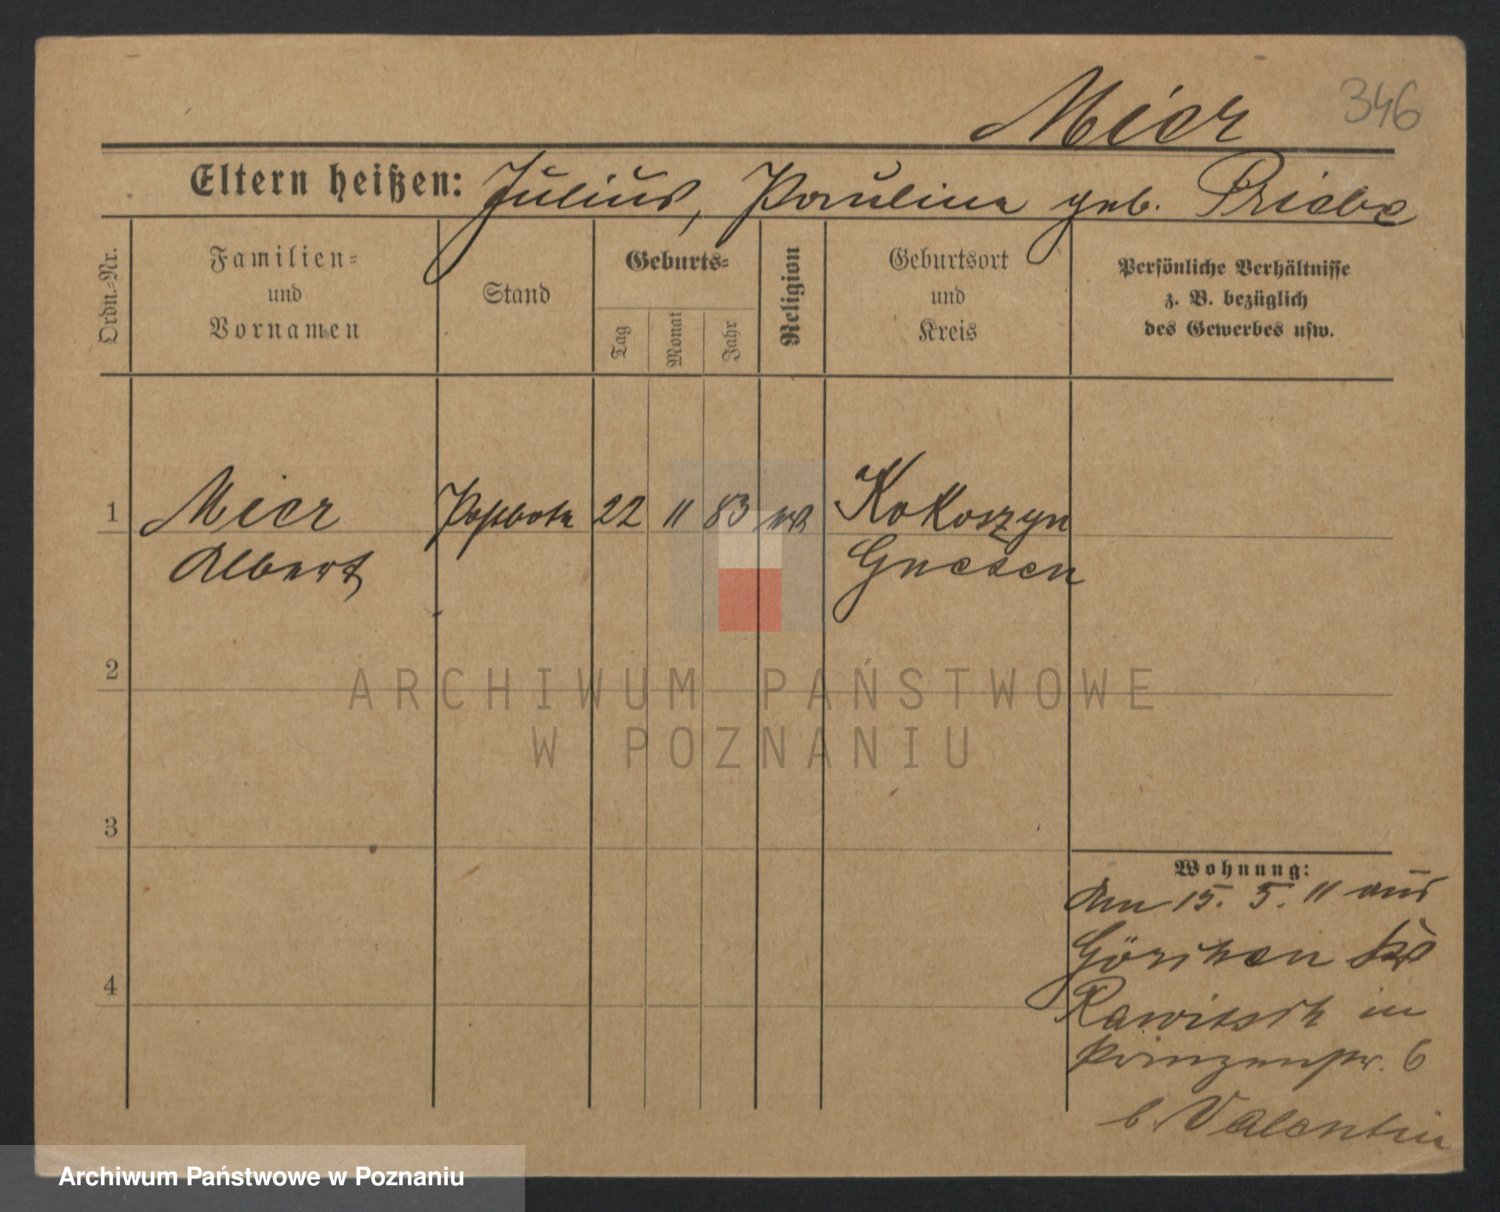 Mier 346
Eltern heißen: Julius, Paulina geb. Priebe
Ordn.-Nr.
Familien-
und
Vornamen
Stand
Geburts-
Tag
Monat
Jahr
Religion
Geburtsort
und
Kreis
Persönliche Verhältnisse
z. B. bezüglich
des Gewerbes usw.
1 Mier Postbote 22 11 83 Kokoszyn
Albert Gnesen
2
3
4
Wohnung:
den 15. 5. 11 aus
Görchen Kr
Rawitsch in
Prinzenstr. 6
b. Valentin
ARCHIWUM PAŃSTWOWE
W POZNANIU
Archiwum Państwowe w Poznaniu